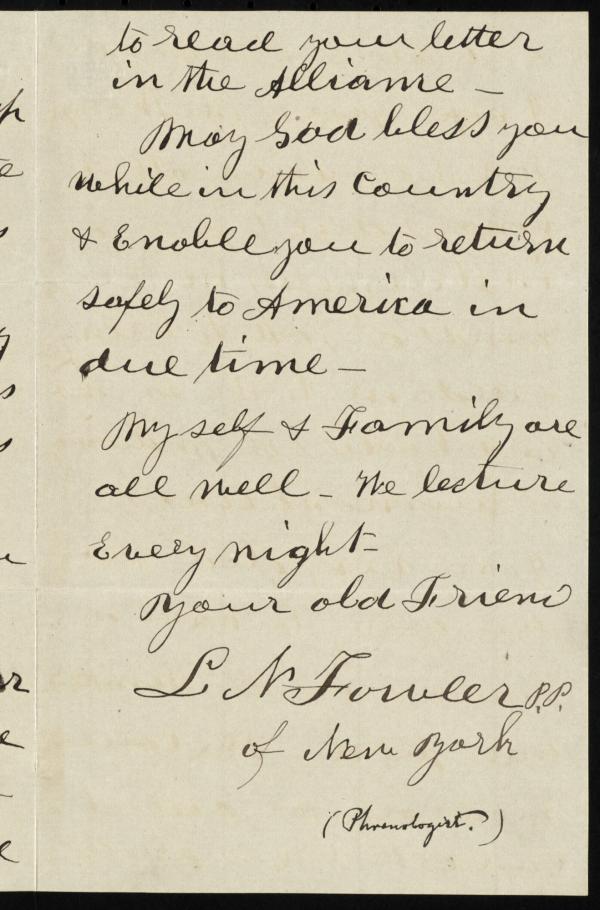 to read your letter
in the Alliance –
May God bless you
while in this Country
& Enable you to return
safely to America in
due time –
My self & Family are
all well – We lecture
Every night –
Your old Friend
L N Fowler P.P.
of New York
(Phrenologist.)